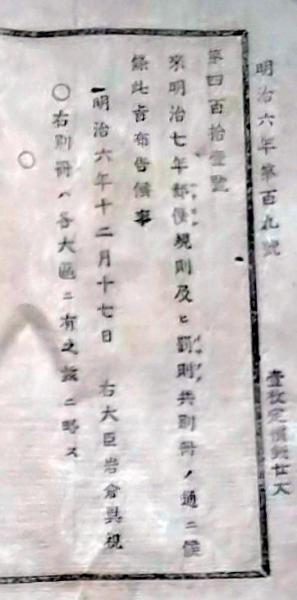 明治六年第百九號
壹枚定價錢廿文
第四百拾壹號
來明治七年郵便規則及ヒ罰則共別冊ノ通ニ候
條此旨布告候事
明治六年十二月十七日 右大臣岩倉具視
○右別冊ハ各大區ニ有之茲ニ略ス
○